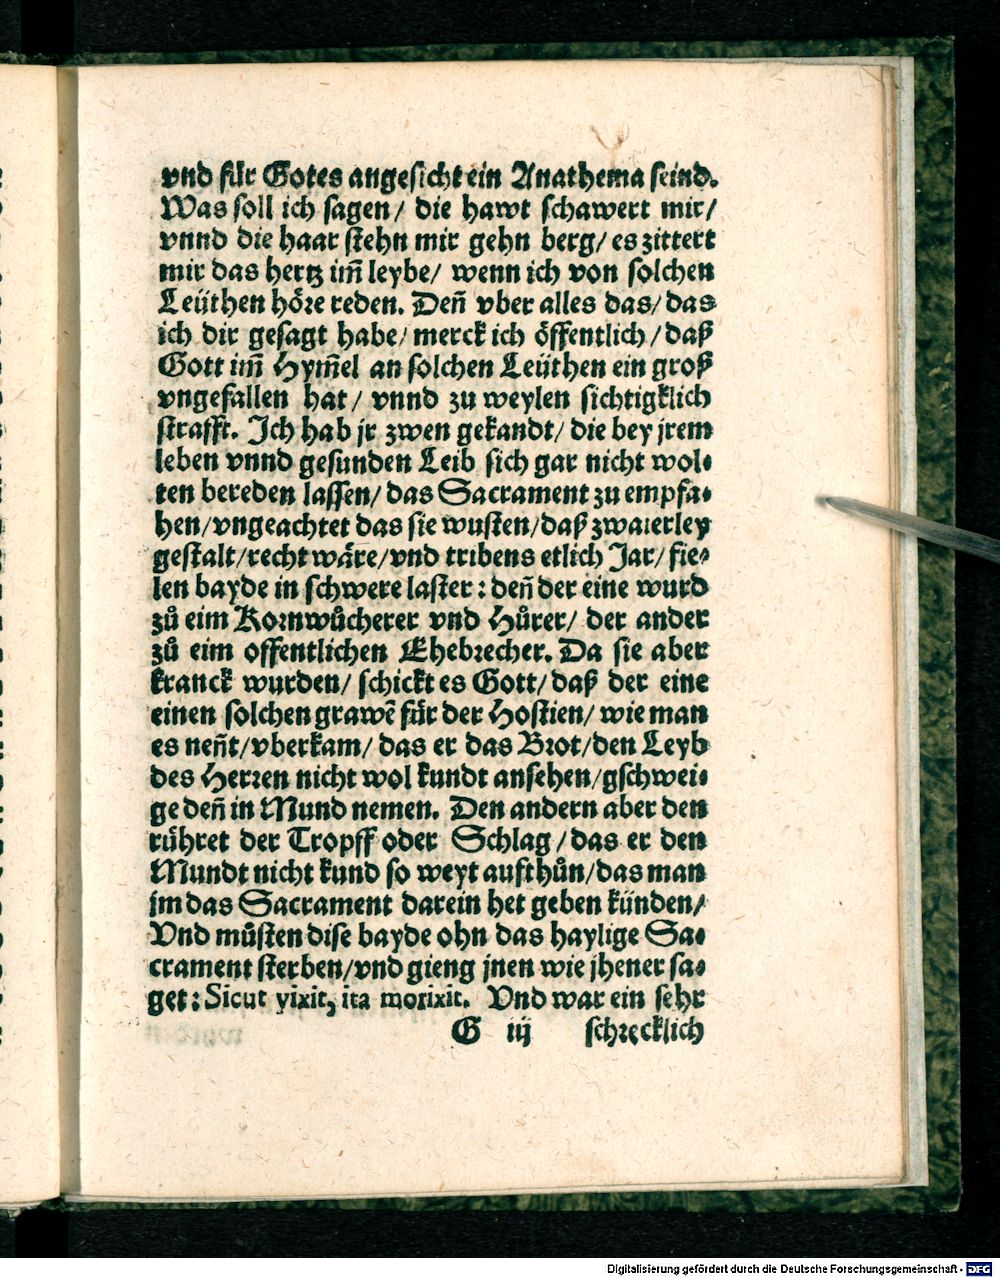 vnd für Gotes angesicht ein Anathema seind.
Was soll ich sagen/ die hawt schawert mir/
vnnd die haar stehn mir gehn berg/ es zittert
mir das hertz im̄ leybe/ wenn ich von solchen
Leüthen höre reden. Den̄ vber alles das/ das
ich dir gesagt habe/ merck ich öffentlich/ daß
Gott im̄ Hym̄el an solchen Leüthen ein groß
vngefallen hat/ vnnd zu weylen sichtigklich
strafft. Ich hab jr zwen gekandt/ die bey jrem
leben vnnd gesunden Leib sich gar nicht wol⸗
ten bereden lassen/ das Sacrament zu empfa⸗
hen/ vngeachtet das sie wusten/ daß zwaierley
gestalt/ recht wäre/ vnd tribens etlich Jar/ fie⸗
len bayde in schwere laster: den̄ der eine wurd
zů eim Kornwůcherer vnd Hůrer/ der ander
zů eim offentlichen Ehebrecher. Da sie aber
kranck wurden/ schickt es Gott/ daß der eine
einen solchen grawē für der Hostien/ wie man
es nen̄t/ vberkam/ das er das Brot/ den Leyb
des Herren nicht wol kundt ansehen/ gschwei⸗
ge den̄ in Mund nemen. Den andern aber den
rühret der Tropff oder Schlag/ das er den
Mundt nicht kund so weyt aufthůn/ das man
jm das Sacrament darein het geben künden/
Vnd můsten dise bayde ohn das haylige Sa⸗
crament sterben/ vnd gieng jnen wie jhener sa⸗
get: Sicut yixit, ita morixit. Vnd war ein sehr
G iij schrecklich
Digitalisierung gefördert durch die Deutsche Forschungsgemeinschaft - DFG